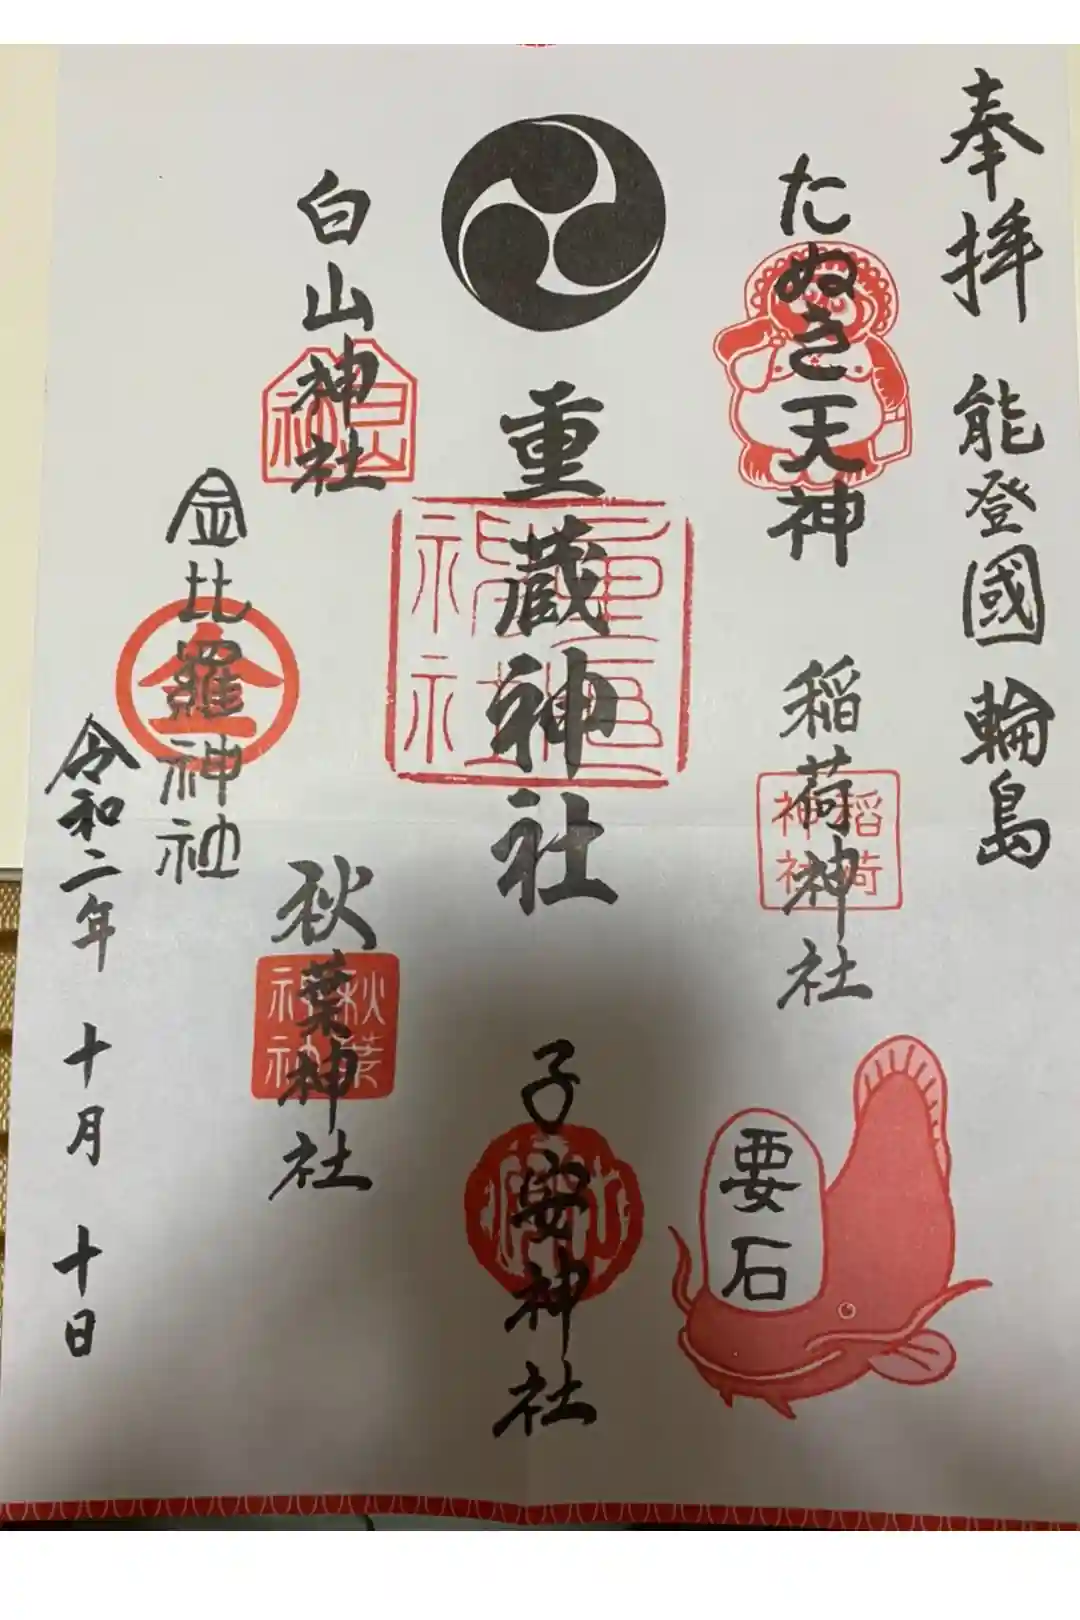 奉拝 能登國 輪島
たぬき天神
稲荷神社
稲荷
神社
要石
重蔵神社
子安神社
白山神社
秋葉神社
秋葉
神社
金比羅神社
金
令和二年 十月 十日